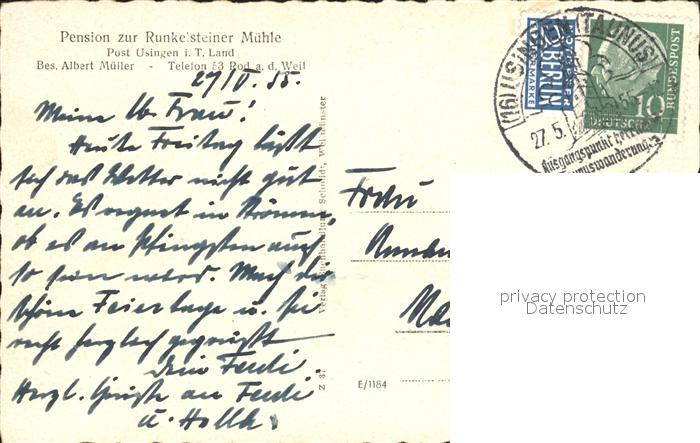 Pension zur Runkelsteiner Mühle
Post Usingen i. T. Land
Bes. Albert Müller - Telefon 53 Rod a. d. Weil
27/V. 55.
Meine lb. Frau!
Heute Freitag läßt
sich das Wetter nicht gut
an. Es regnet in Strömen,
ob es an Pfingsten auch
so sein wird. Mach dir
schöne Feiertage u. sei
recht herzlich gegrüßt
Dein Ferdi
Herzl. Grüße an Ferdi
u. Holla.
Verlag Buchhandlung Schmidt, Weilmünster
Z 87
E/1184
Frau
(16) USINGEN (TAUNUS)
27.5.
Ausgangspunkt
NOTOPFER
2 BERLIN
STEUERMARKE
10
DEUTSCHE
BUNDESPOST
privacy protection
Datenschutz